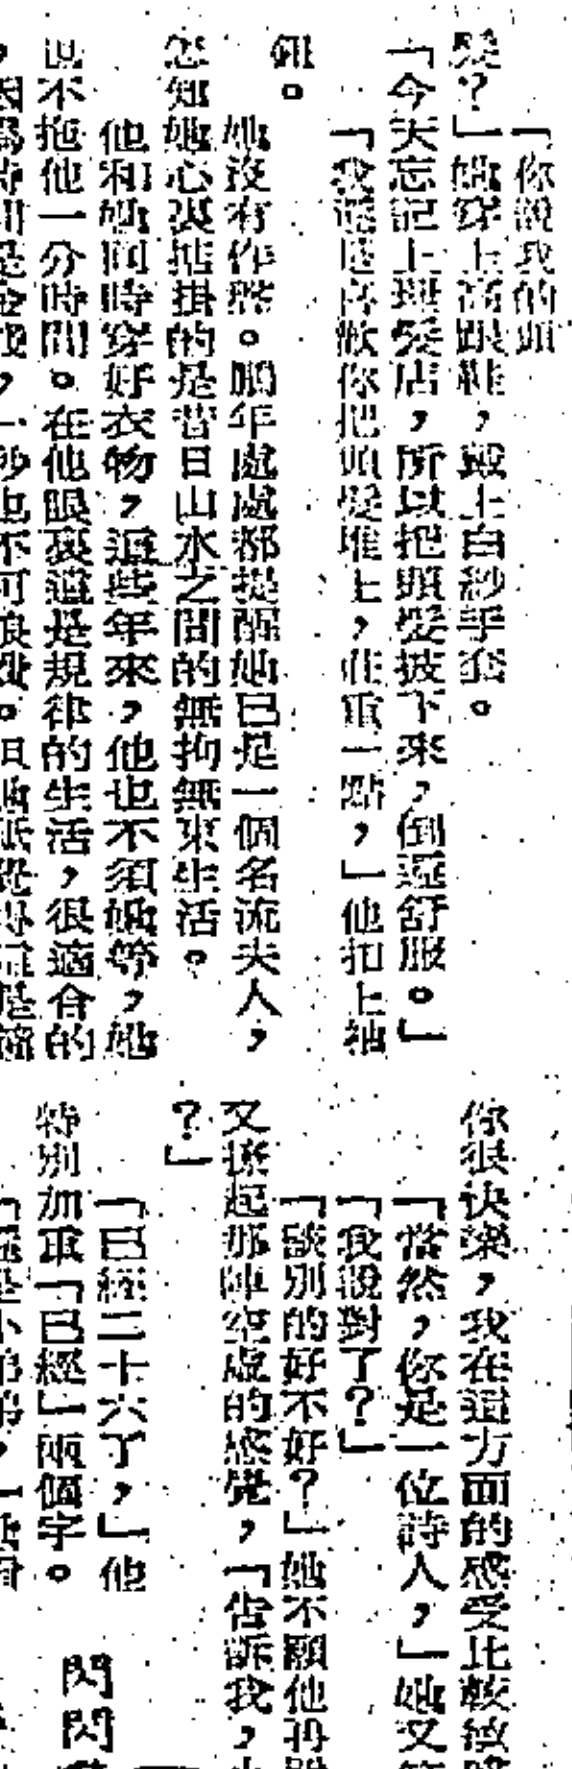 「你說我的頭
髮?」她穿上高跟鞋,戴上白紗手套。
「今天忘記上理髮店,所以把頭髮披下來,倒蠻舒服。」
「我還是喜歡你把頭髮堆上,莊重一點,」他扣上袖
鈕。
她沒有作聲。鵬年處處都提醒她已是一個名流夫人,
怎知她心裏掂掛的是昔日山水之間的無拘無束生活。
他和她同時穿好衣物,這些年來,他也不須她等,她
也不拖他一分時間。在他眼裏這是規律的生活,很適合的
,因爲時間是金錢,一秒也不可浪費。但她祇覺得這是
你很快樂,我在這方面的感受比較敏
「當然,你是一位詩人,」她又
「我說對了?」
「談別的好不好?」她不願他再
又撩起那陣空虛的感覺,「告訴我,
?」
「已經二十六了,」他
特別加重「已經」兩個字。
「還是小弟弟,」
閃閃